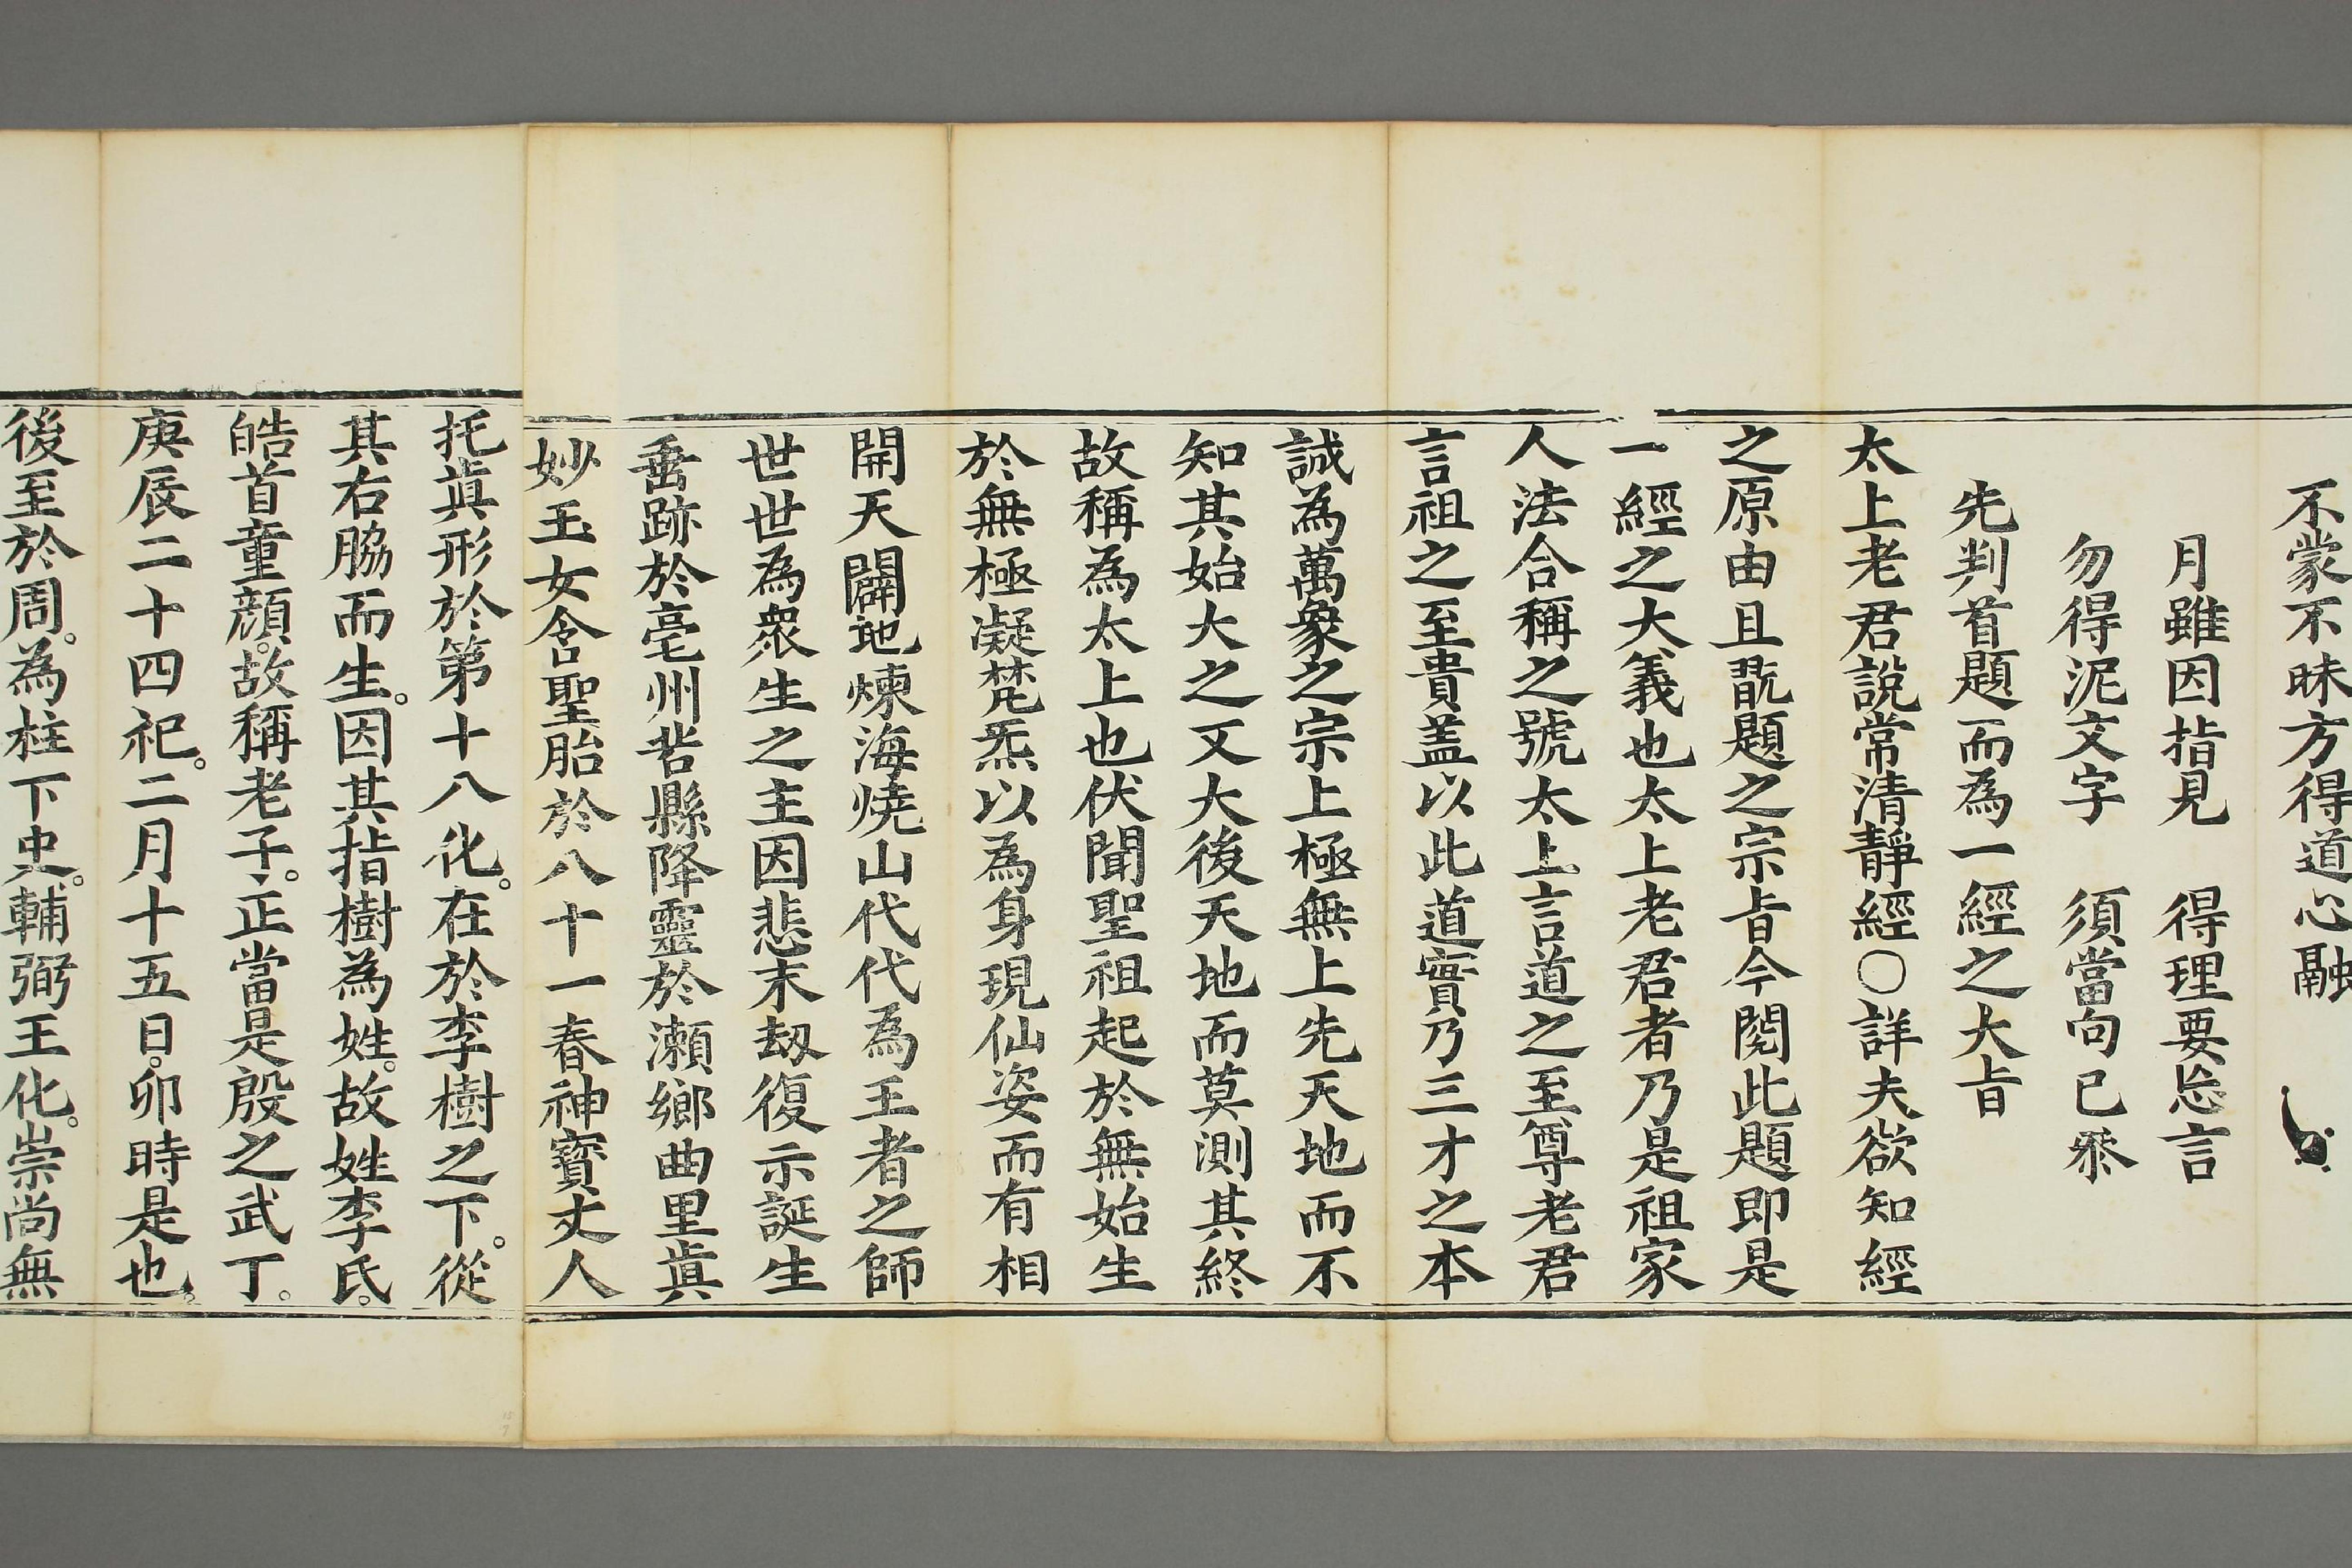 不蒙不昧方得道心融
月雖因指見　得理要忘言
勿得泥文字　須當向已叅
先判首題而為一經之大㫖
太上老君說常清靜經〇詳夫欲知經
之原由且翫題之宗㫖今閱此題即是
一經之大義也太上老君者乃是祖家
人法合稱之號太上言道之至尊老君
言祖之至貴盖以此道實乃三才之本
誠為萬象之宗上極無上先天地而不
知其始大之又大後天地而莫測其終
故稱為太上也伏聞聖祖起於無始生
於無極凝梵炁以為身現仙姿而有相
開天闢地煉海燒山代代為王者之師
世世為衆生之主因悲末刼復示誕生
垂跡於亳州苦縣降靈於瀨鄉曲里眞
妙玉女含聖胎於八十一春神寶丈人
托眞形於第十八化。在於李樹之下。從
其右脇而生。因其指樹為姓。故姓李氏。
皓首童顏。故稱老子。正當是殷之武丁。
庚辰二十四祀。二月十五日。卯時是也。
後至於周。為柱下史。輔弼王化。崇尚無